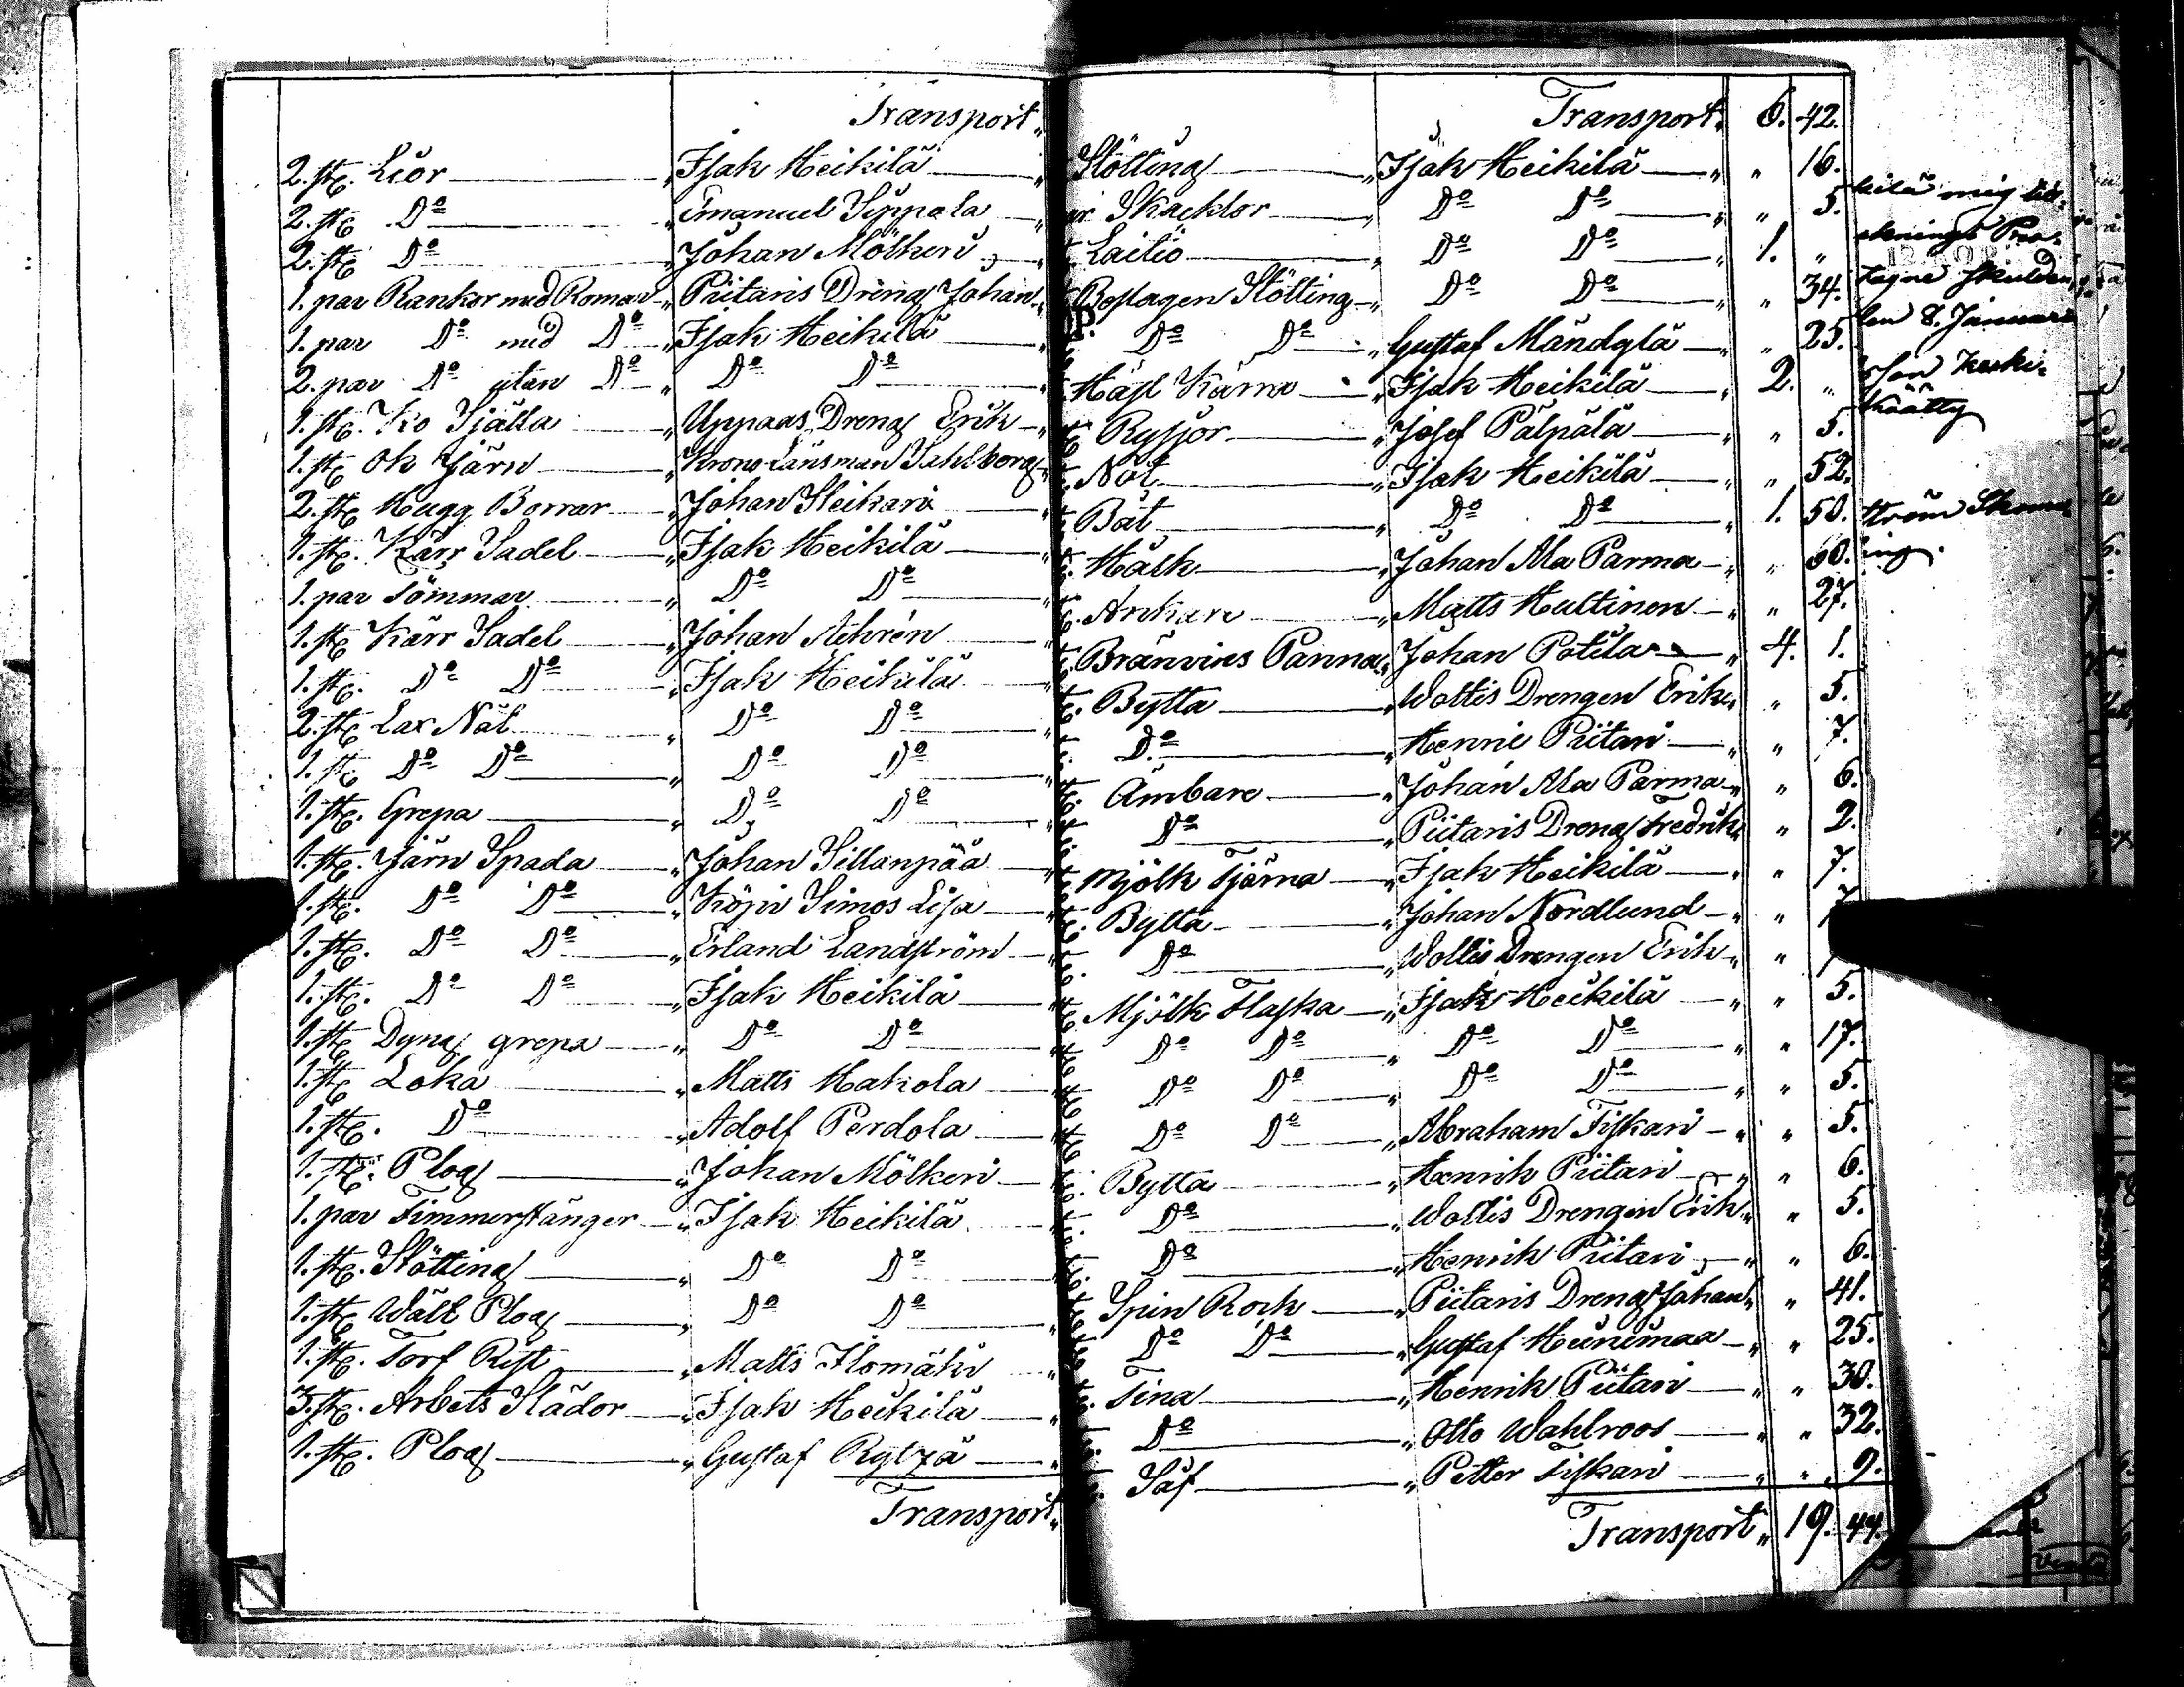 Transport
2. st. Liör Isak Heikilä
2. st. Do Emanuel Seppala
2. st. Do Johan Mölkeri
1. par Rankor med Romar Piitaris Dreng Johan
1. par Do med Do Isak Heikilä
2. par Do utan Do Do Do
1. st. Ko Själla Uppaas Dreng Erik
1. st. Ok Järn Krono Länsman Sahlberg
2. st. Hugg Borrar Johan Sleikari
1. st. Kärr Sadel Isak Heikilä
1. par Tömmar Do Do
1. st. Kärr Sadel Johan Aehrén
1. st. Do Do Isak Heikilä
2. st. Lax Nät Do Do
1. st. Do Do Do Do
1. st. Grepa Do Do
1. st. Järn Spada Johan Sillanpää
1. st. Do Do Köpi Simos Lisa
1. st. Do Do Erland Landström
1. st. Do Do Isak Heikilä
1. st. Dyng grepa Do Do
1. st. Loka Matts Hakola
1. st. Do Adolf Perdola
1. st. Plog Johan Mölkeri
1. par Timmerstänger Isak Heikilä
1. st. Stötting Do Do
1. st. Wält Plog Do Do
1. st. Torf Rist Matts Ilomäki
3. st. Arbets Slädor Isak Heikilä
1. st. Plog Gustaf Rytzä
Transport
Transport 6. 42.
Stötting Isak Heikilä " 16.
Skacklor Do Do " 5.
Laitio Do Do 1. "
Beslagen Stötting Do Do " 34.
Do Do Gustaf Mändylä " 25.
Häst Kärra Isak Heikilä 2. "
Ryssjor Josef Pälpälä " 5.
Not Isak Heikilä " 52.
Båt Do Do 1. 50.
Hälk Johan Ala Parma " 60.
Ankare Matts Huttinen " 27.
Bränvins Panna Johan Potila 4. 1.
Bytta Wottis Drengen Erik " 5.
Do Henric Piitari " 7.
Ämbare Johan Ala Parma " 6.
Do Piitaris Dreng Fredrik " 2.
Mjölk Tjärna Isak Heikilä " 7.
Bytta Johan Nordlund "
Do Wottis Drengen Erik "
Mjölk Flaska Isak Heikilä " 5.
Do Do Do Do " 17.
Do Do Do Do " 5.
Do Do Abraham Fiskari " 5.
Bytta Henrik Piitari " 6.
Do Wottis Drengen Erik " 5.
Do Henrik Piitari " 6.
Spin Rock Piitaris Dreng Johan " 41.
Do Do Gustaf Heinimaa " 25.
Tina Henrik Piitari " 30.
Do Otto Wahlroos " 32.
Säf Petter Fiskari " 9.
Transport 19. 44.
kilä mig
8. Januari